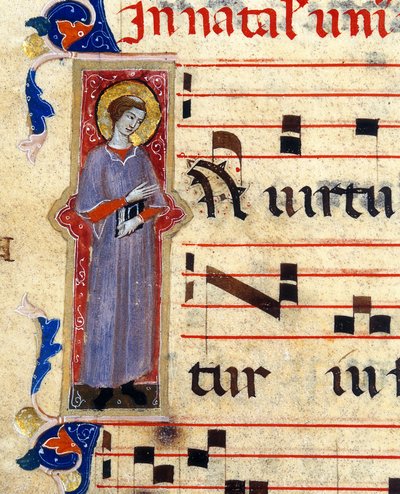 In natal' uni
N uirtu
tur in